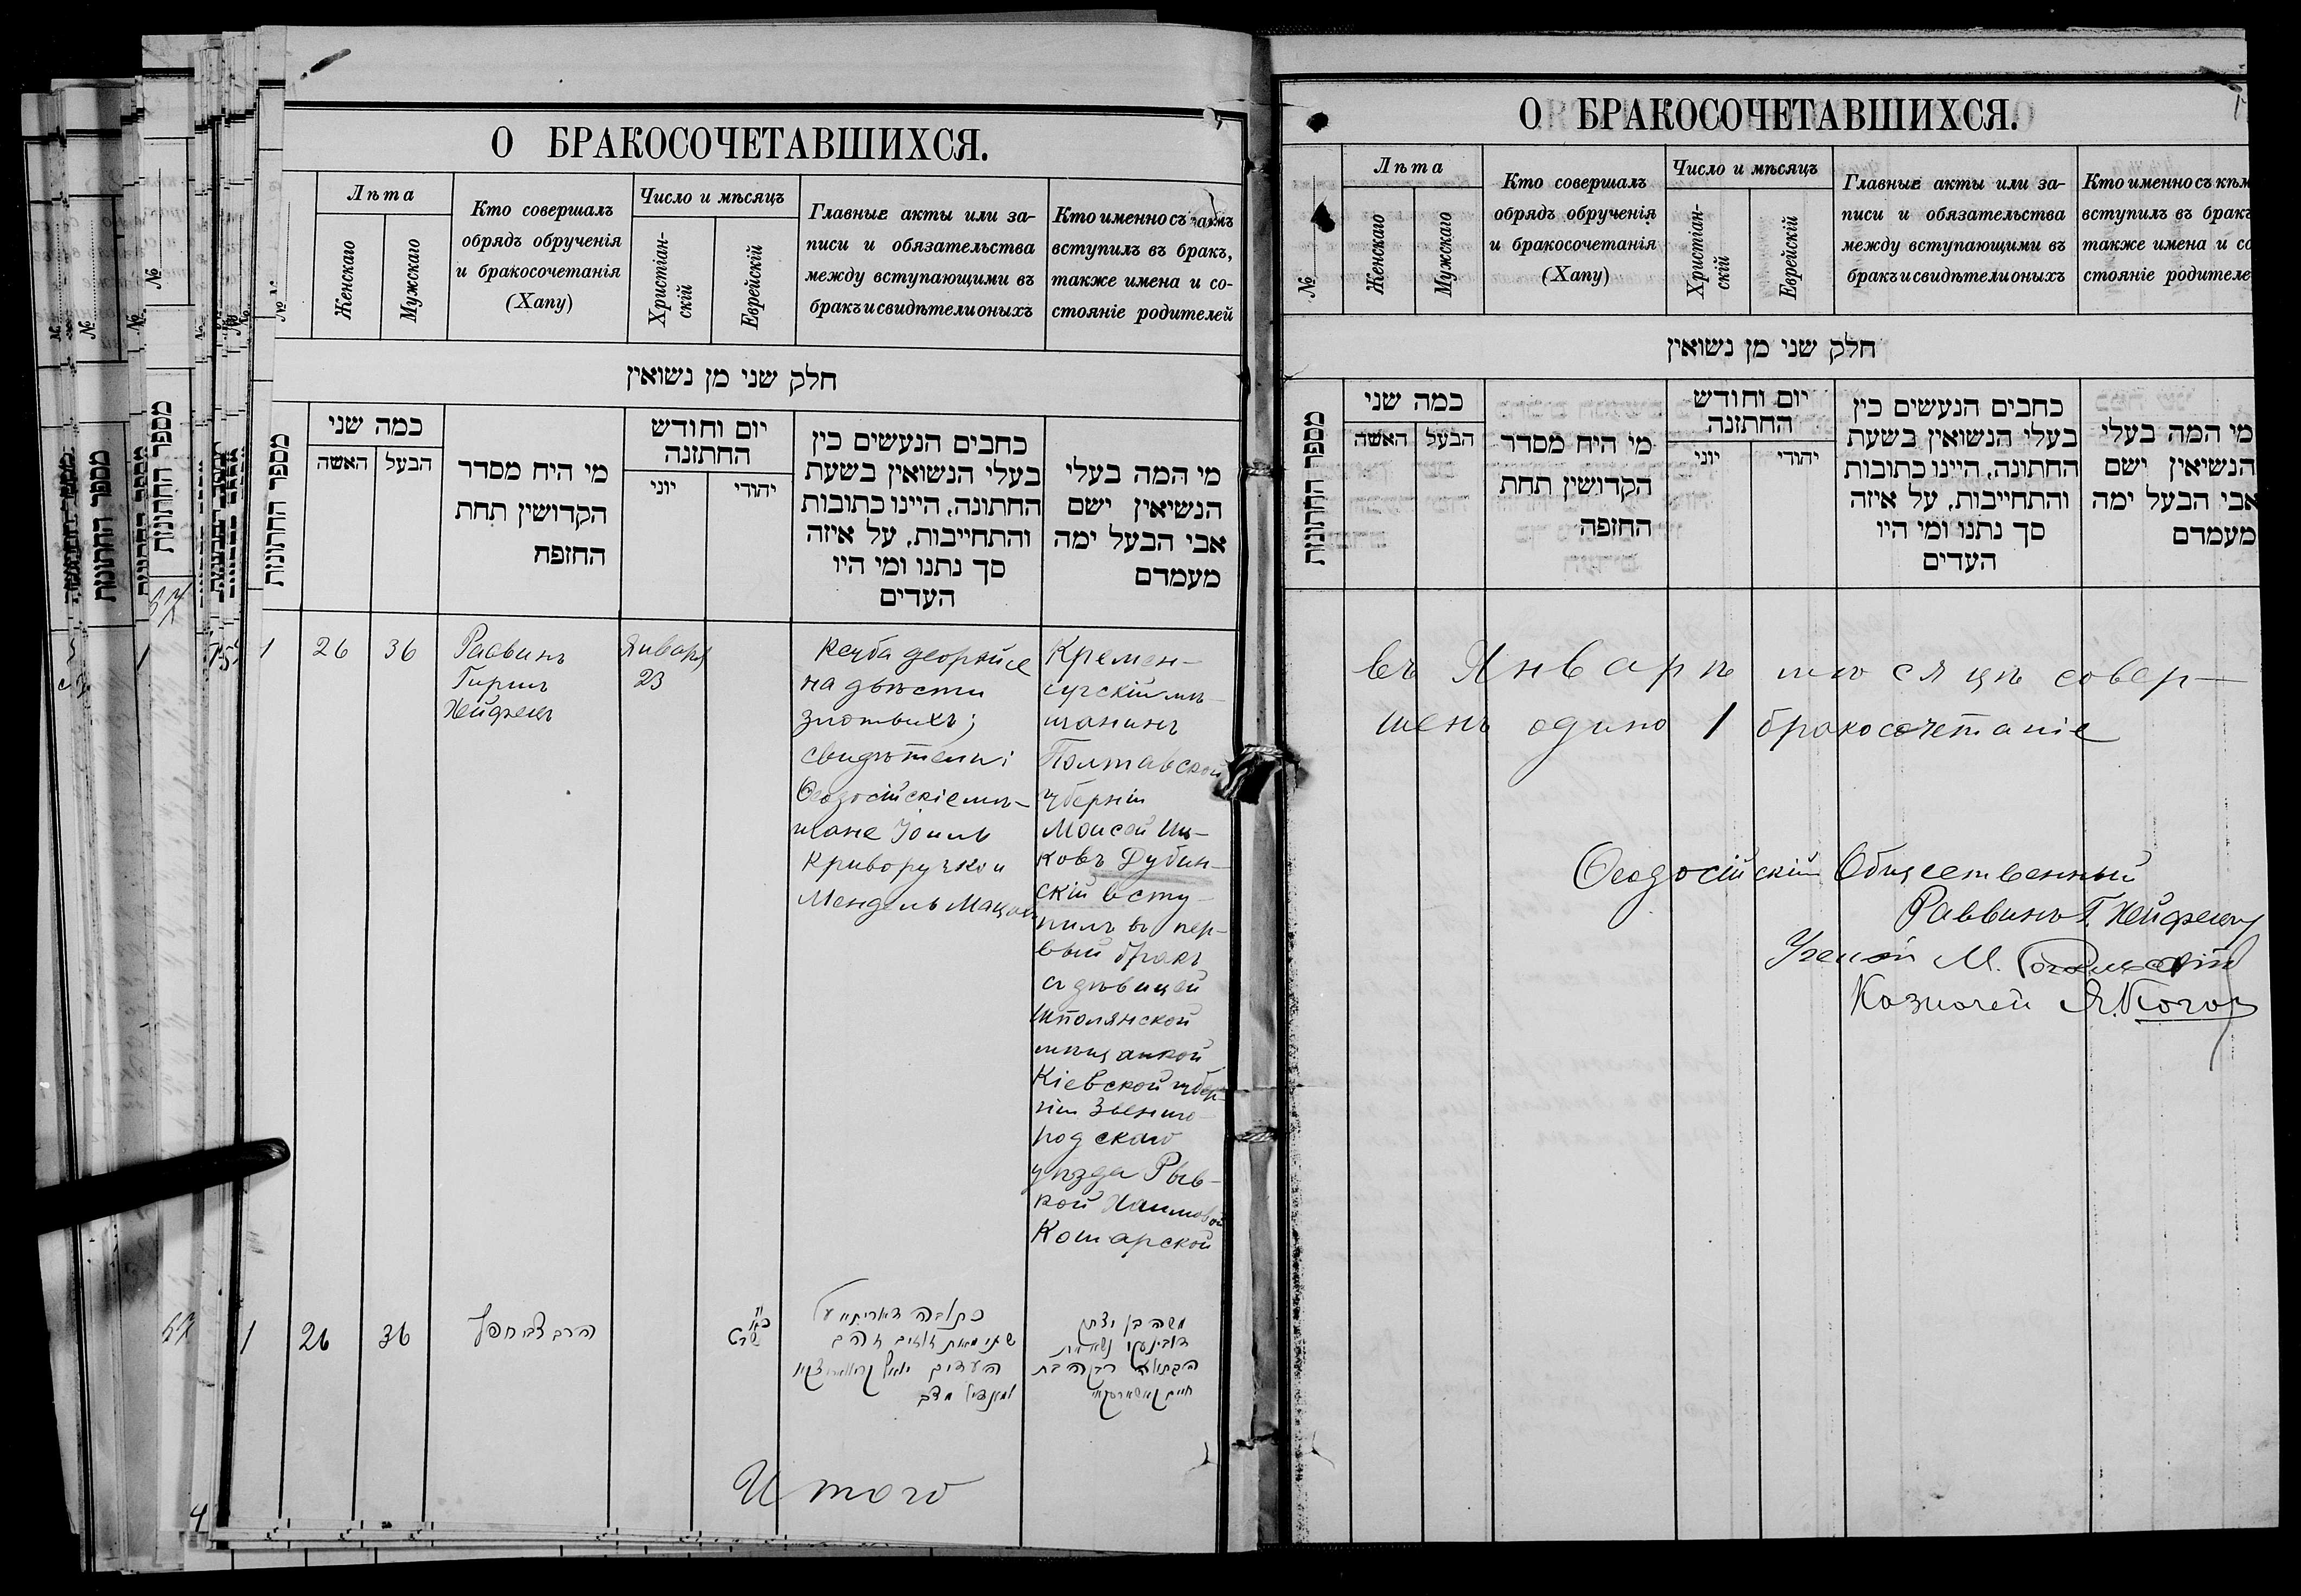 О БРАКОСОЧЕТАВШИХСЯ.
№
Лѣта
Женскаго
Мужскаго
Кто совершалъ
обрядъ обрученія
и бракосочетанія
(Хапу)
Число и мѣсяцъ
Христіан-
скій
Еврейскій
Главные акты или за-
писи и обязательства
между вступающими въ
бракъ и свидѣтели оныхъ
Кто именно съ
вступилъ въ бракъ,
также имена и со-
стояніе родителей
חלק שני מן נשואין
מספר החתונות
כמה שני
האשה
הבעל
מי היח מסדר
הקדושין תחת
החזפח
יום וחודש
החתזנה
יוני
יהודי
כחבים הנעשים כין
בעלי הנשואין בשעת
החתונה, היינו כתובות
והתחייבות, על איזה
סך נתנו ומי היו
העדים
מי המה בעלי
הנשיאין ישם
אבי הבעל ימה
מעמדם
1
26
36
Раввинъ
Гиршъ
Хейфецъ
Января
23
на двѣсти
злотыхъ;
свидѣтели:
Ѳеодосійскіе мѣ-
щане Іоиль
Криворучко и
Мендель
Кремен-
чугскій мѣ-
щанинъ
Полтавской
губерніи
Моисей Иц-
ковъ Дубин-
скій всту-
пилъ въ пер-
вый бракъ
съ дѣвицей
Шполянской
мѣщанкой
Кіевской губер-
ніи Звениго-
родскаго
уѣзда Рыв-
кой Хаимовой
Кошарской
1
26
36
הרב צבי חפץ
כתובה דאוריתא על
שתי מאות זוזים זהב
העדים יואל
משה בן יצחק
דובינסקי נשא את
הבתולה רבקה בת
חיים קאשארסקאי
Итого
О БРАКОСОЧЕТАВШИХСЯ.
№
Лѣта
Женскаго
Мужскаго
Кто совершалъ
обрядъ обрученія
и бракосочетанія
(Хапу)
Число и мѣсяцъ
Христіан-
скій
Еврейскій
Главные акты или за-
писи и обязательства
между вступающими въ
бракъ и свидѣтели оныхъ
Кто именно съ кѣм
вступилъ въ бракъ
также имена и со
стояніе родителе
חלק שני מן נשואין
מספר החתונות
כמה שני
האשה
הבעל
מי היח מסדר
הקדושין תחת
החזפה
יום וחודש
החתזנה
יוני
יהודי
כחבים הנעשים כין
בעלי הנשואין בשעת
החתונה, היינו כתובות
והתחייבות, על איזה
סך נתנו ומי היו
העדים
מי המה בעלי
הנשיאין ישם
אבי הבעל ימה
מעמדם
въ Январѣ мѣсяцѣ совер-
шенъ одинъ 1 бракосочетаніе
Ѳеодосійскій Общественный
Раввинъ Г. Хейфецъ
Ученой М.
Казначей Я. Коган